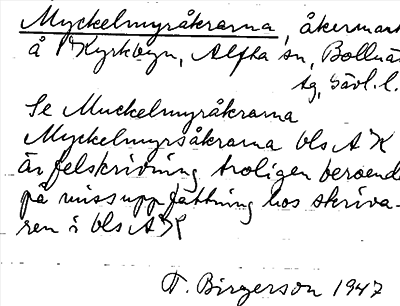 Myckelmyråkrarna, åkermark
å Kyrkbyn, Alfta sn, Bollnäs
tg, Gävl. l.
Se Muckelmyråkrarna
Myckelmyrsåkrarna bls A K
är felskrivning troligen beroende
på missuppfattning hos skriva-
ren i bls A K
F. Birgerson 1947